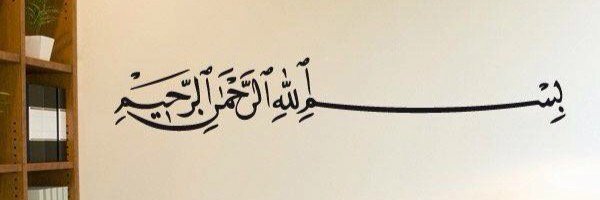 بِسْمِ ٱللهِ ٱلرَّحْمٰنِ ٱلرَّحِيْمِ